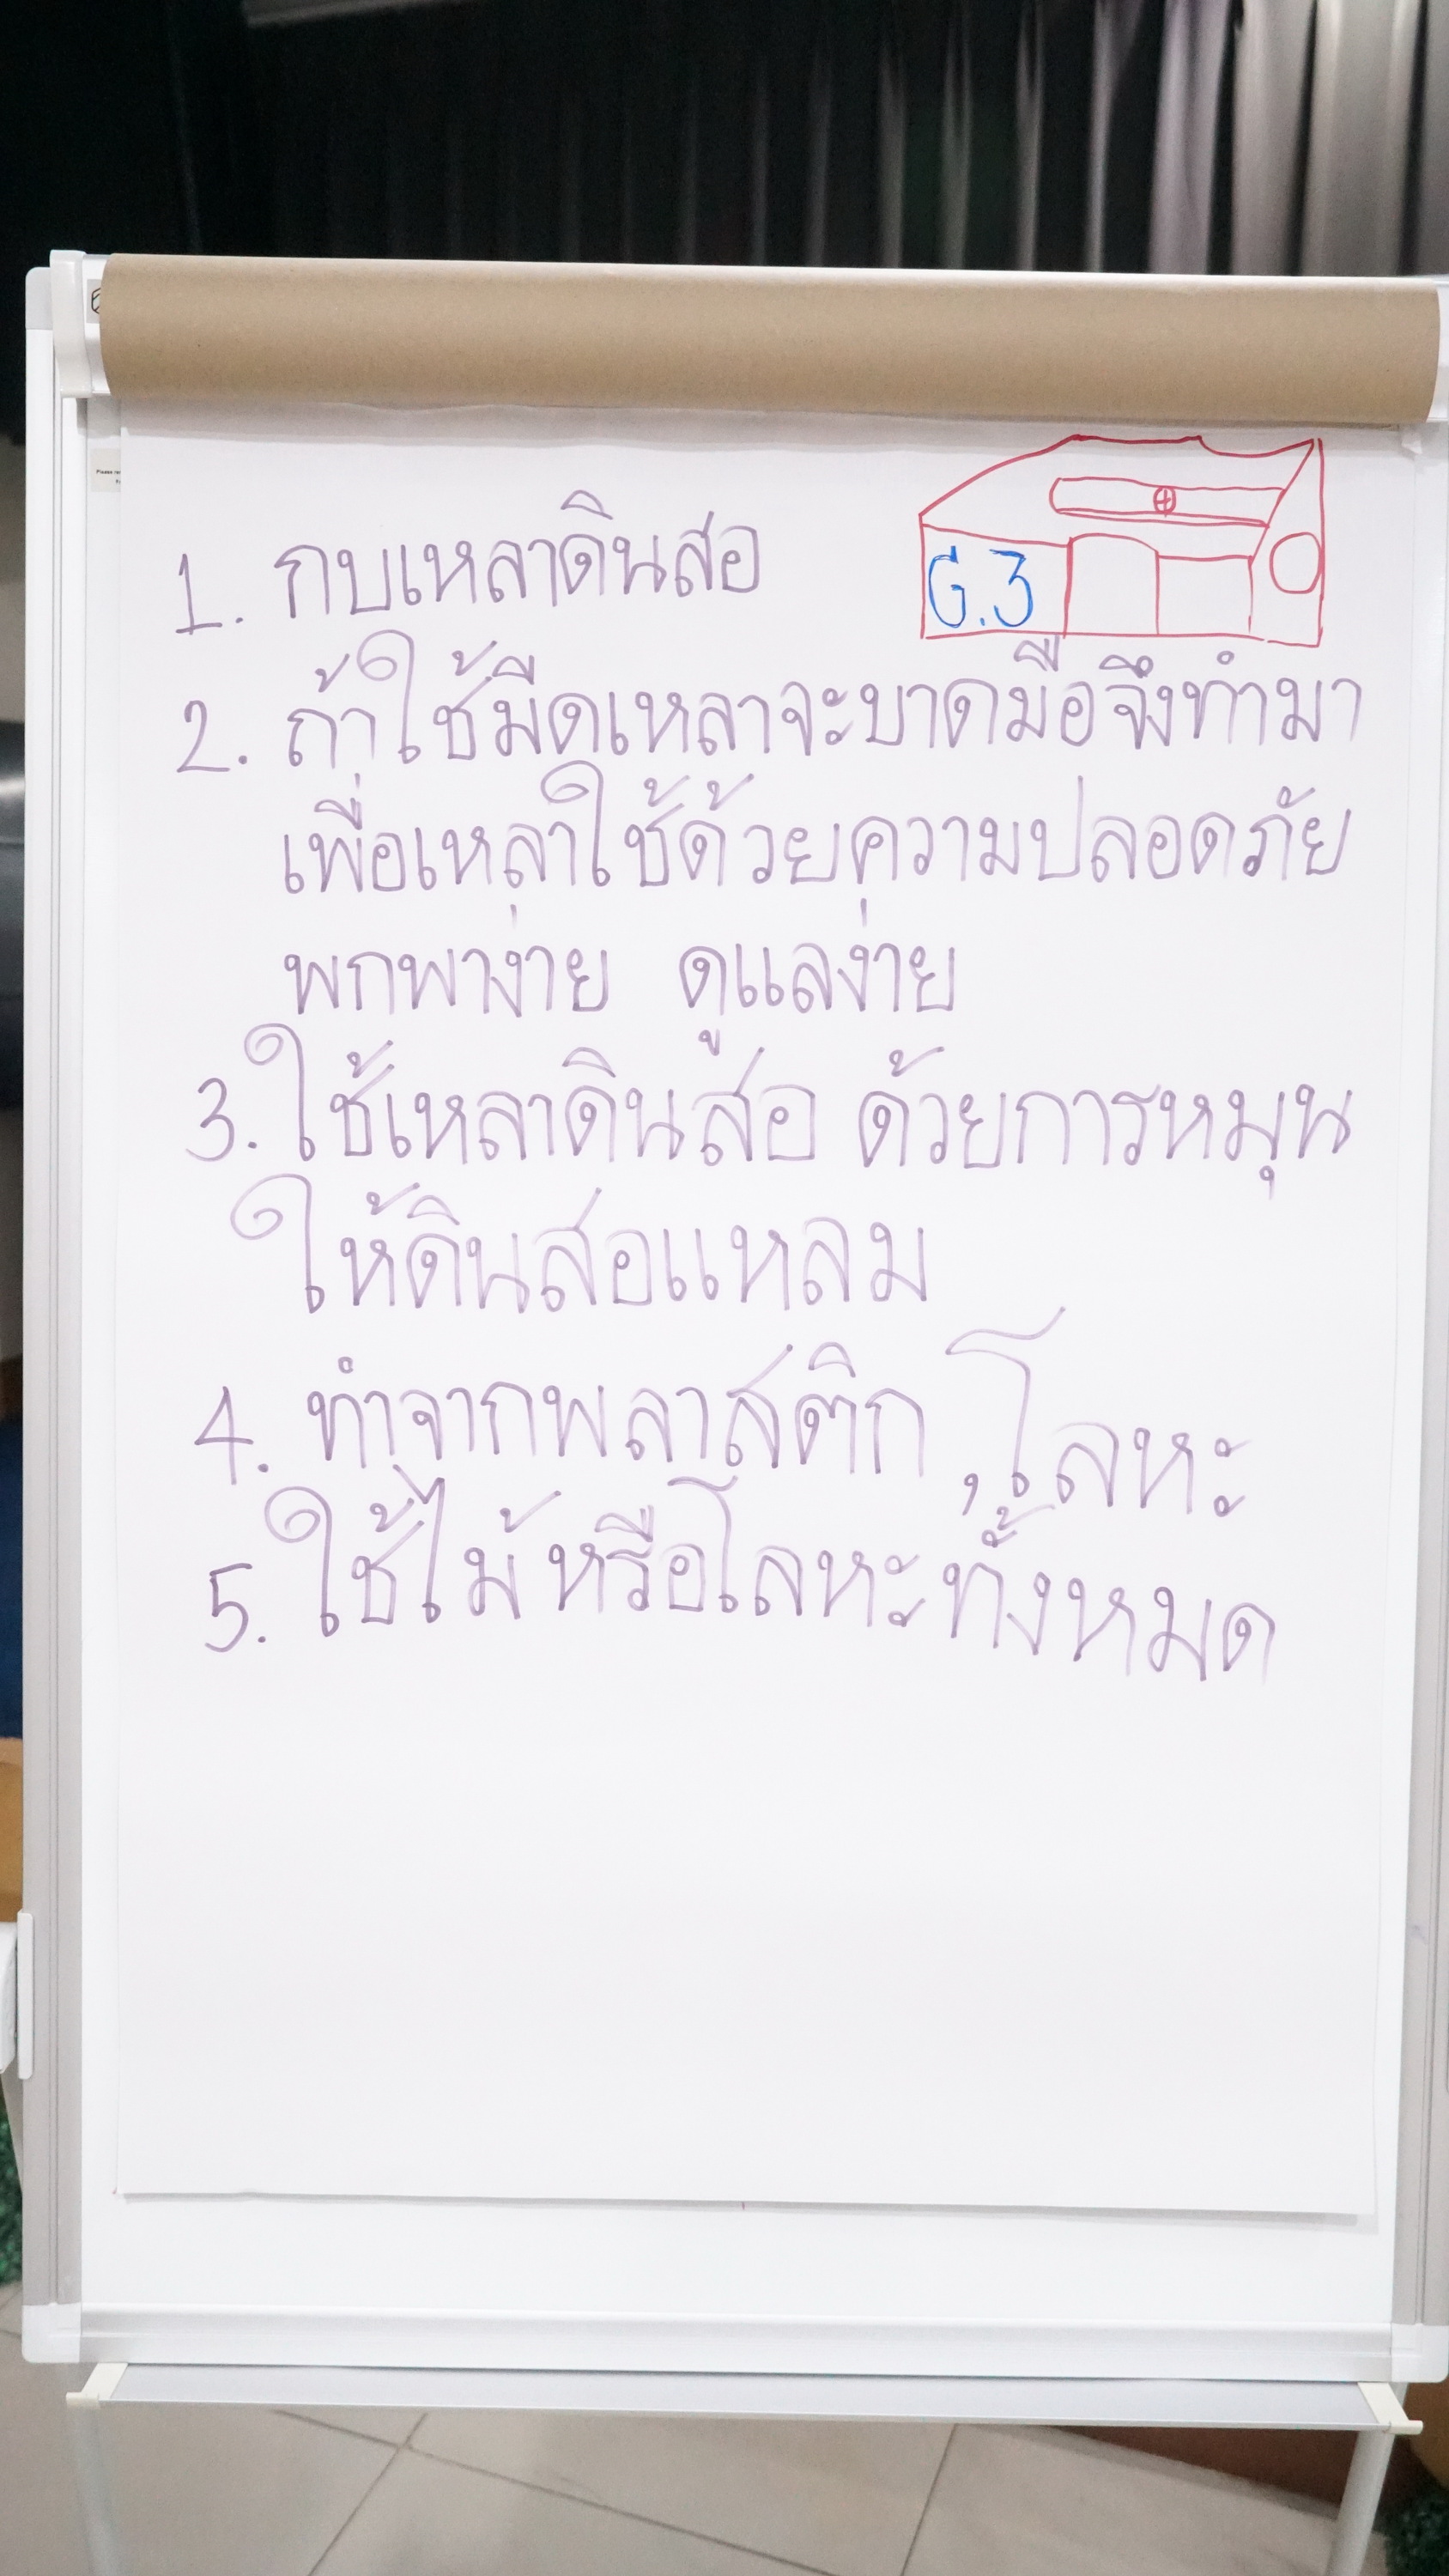 1. กบเหลาดินสอ
G.3
2. ถ้าใช้มีดเหลาจะบาดมือจึงทำมา
เพื่อเหลาใช้ด้วยความปลอดภัย
พกพาง่าย ดูแลง่าย
3. ใช้เหลาดินสอ ด้วยการหมุน
ให้ดินสอแหลม
4. ทำจากพลาสติก ,โลหะ
5. ใช้ไม้หรือโลหะทั้งหมด